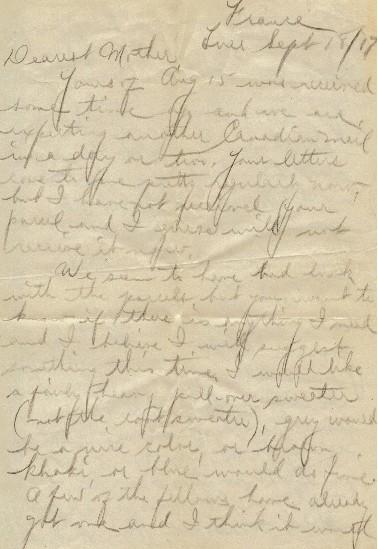 France
Tues Sept 18/17
Dearest Mother
Yours of Aug 15 was received
some time ago and we are
expecting another Canadian mail
in a day or two. Your letters
come to me pretty regularly now,
but I have not received your
parcel and I will not
receive it now.
We seem to have bad luck
with the parcels but you want to
know if there is anything I need
and I believe I will suggest
something this time. I would like
a fairly heavy pull-over sweater
(not the coat sweater), grey would
be a nice color, or brown,
khaki or blue would do fine.
A few of the fellows have already
got one and I think it would